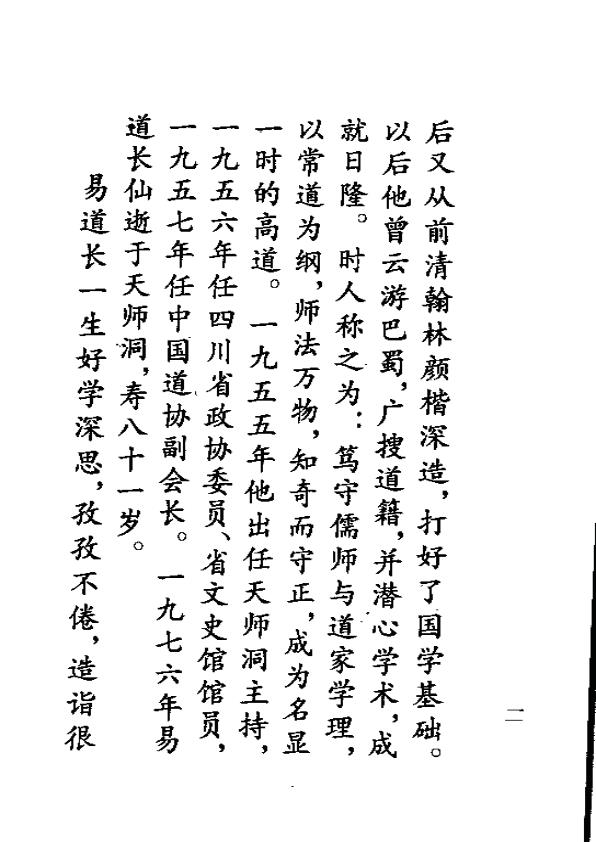 后又从前清翰林颜楷深造，打好了国学基础。
以后他曾云游巴蜀，广搜道籍，并潜心学术，成
就日隆。时人称之为：笃守儒师与道家学理，
以常道为纲，师法万物，知奇而守正，成为名显
一时的高道。一九五五年他出任天师洞主持，
一九五六年任四川省政协委员、省文史馆馆员，
一九五七年任中国道协副会长。一九七六年易
道长仙逝于天师洞，寿八十一岁。
易道长一生好学深思，孜孜不倦，造诣很
二